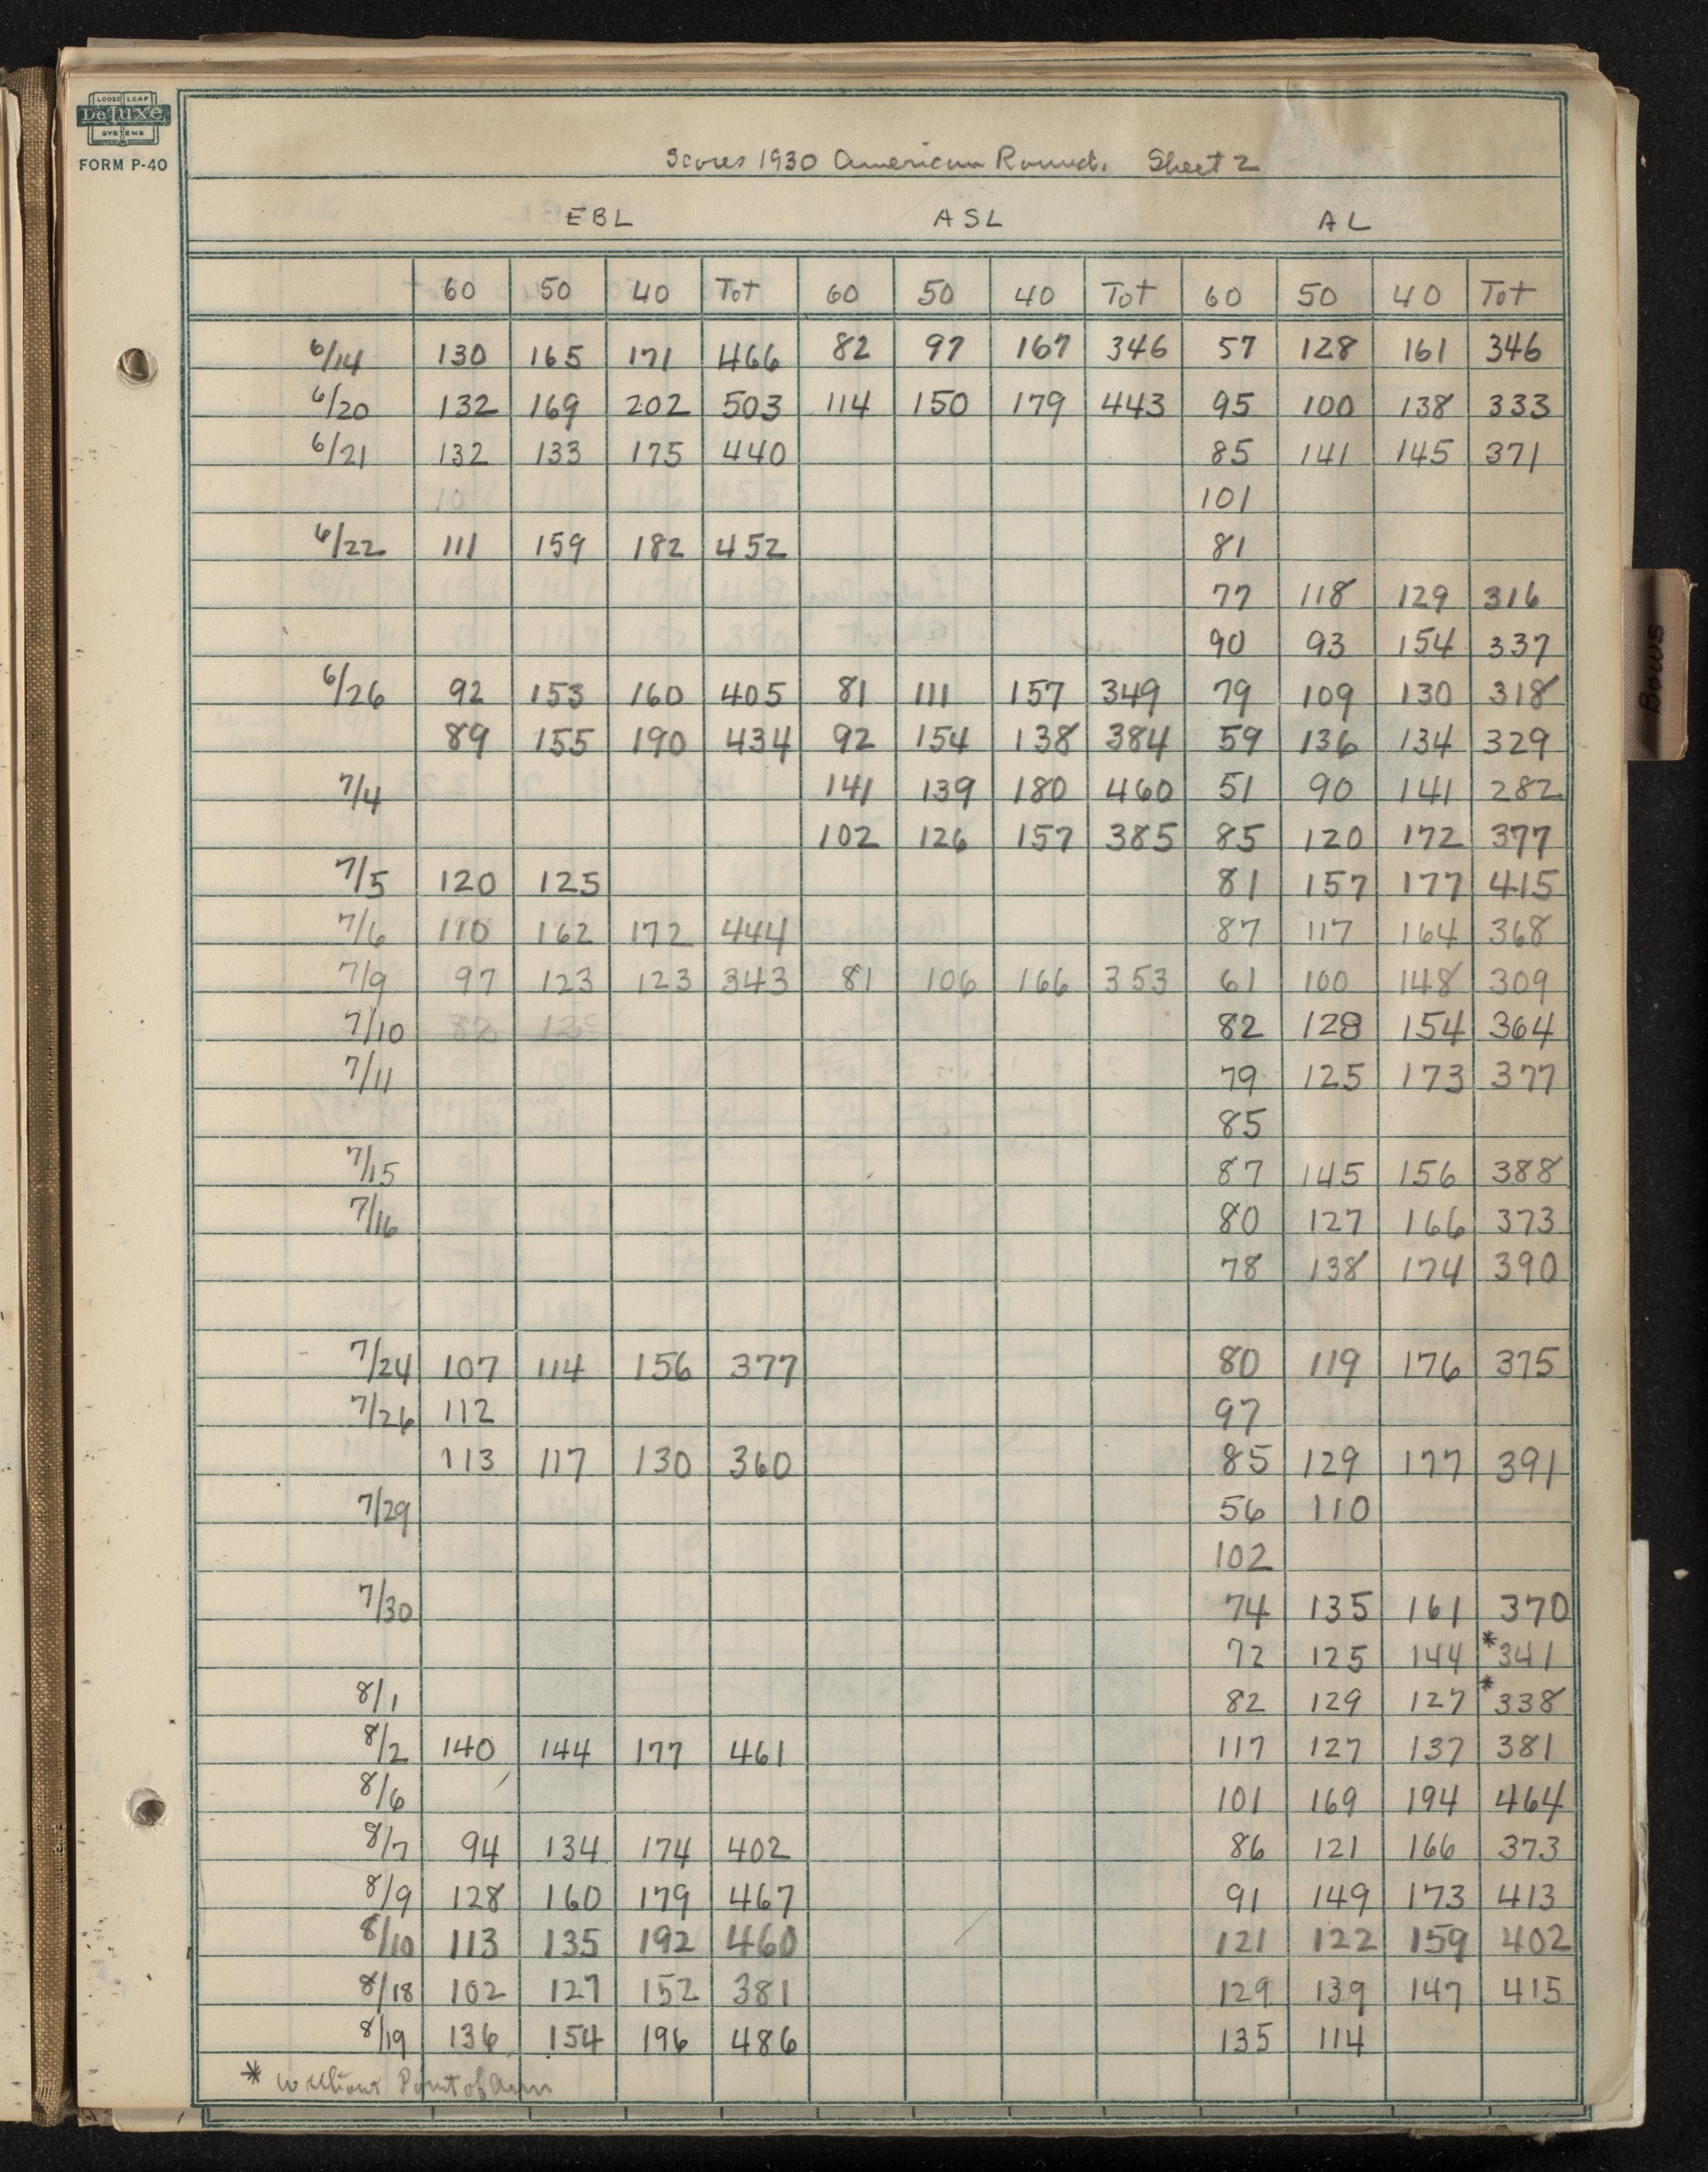 LOOSE LEAF
DeLuxe
SYSTEMS
FORM P-40
Scores 1930 American Round. Sheet 2
EBL ASL AL
60 50 40 Tot 60 50 40 Tot 60 50 40 Tot
6/14 130 165 171 466 82 97 167 346 57 128 161 346
6/20 132 169 202 503 114 150 179 443 95 100 138 333
6/21 132 133 175 440 85 141 145 371
101
6/22 111 159 182 452 81
77 118 129 316
90 93 154 337
6/26 92 153 160 405 81 111 157 349 79 109 130 318
89 155 190 434 92 154 138 384 59 136 134 329
7/4 141 139 180 460 51 90 141 282
102 126 157 385 85 120 172 377
7/5 120 125 81 157 177 415
7/6 110 162 172 444 87 117 164 368
7/9 97 123 123 343 81 106 166 353 61 100 148 309
7/10 82 128 154 364
7/11 79 125 173 377
85
7/15 87 145 156 388
7/16 80 127 166 373
78 138 174 390
7/24 107 114 156 377 80 119 176 375
7/26 112 97
113 117 130 360 85 129 177 391
7/29 56 110
102
7/30 74 135 161 370
72 125 144 *341
8/1 82 129 127 *338
8/2 140 144 177 461 117 127 137 381
8/6 101 169 194 464
8/7 94 134 174 402 86 121 166 373
8/9 128 160 179 467 91 149 173 413
8/10 113 135 192 460 121 122 159 402
8/18 102 127 152 381 129 139 147 415
8/19 136 154 196 486 135 114
* without Point of Aim
Bows